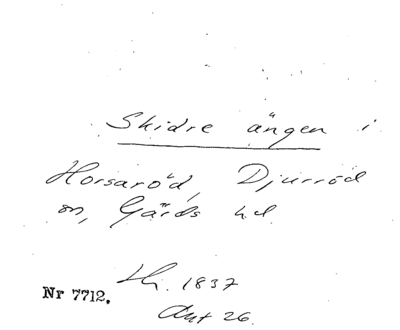 Skidre ängen i
Horsaröd, Djurröd
sn, Gärds hd
Hi. 1837
Nr 7712.
Akt 26.